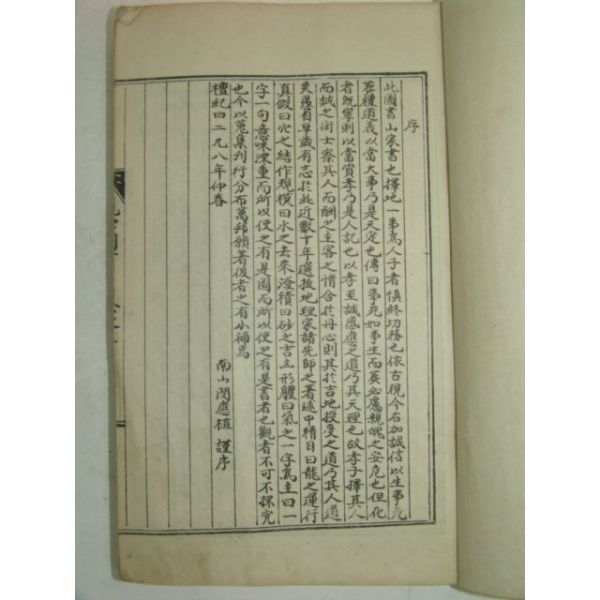 序
此圖書山家書也擇地一事爲人子者愼終切務也依古視今石加誠信以生事死
種道義以當大事乃是天定也傳曰事死如事生而葬必慮親魄之安危也但化
者旣寧則以當資孝乃是人記也以孝至誠感應之道乃其天理也故孝子擇其人
而誠之術士察其人而酬之主客之情合於丹心則其於吉地授受之道乃其人道
矣愚自早歲有志於此近數十年選拔地理家諸先師之著述中精目曰龍之運行
眞假曰穴之結作規模曰水之去來澄積曰砂之吉凶形體曰氣之一字爲主曰一
字一句意味深重而所以使之有是圖而所以使之有是書者也觀者不可不探究
也今以蒐集刊行分布萬邦願著後者之有小補焉
檀紀四二九八年仲春
南山閔應植 謹序